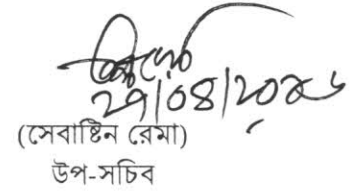 ২৭/০৪/২০২৬
(সেবাষ্টিন রেমা)
উপ-সচিব